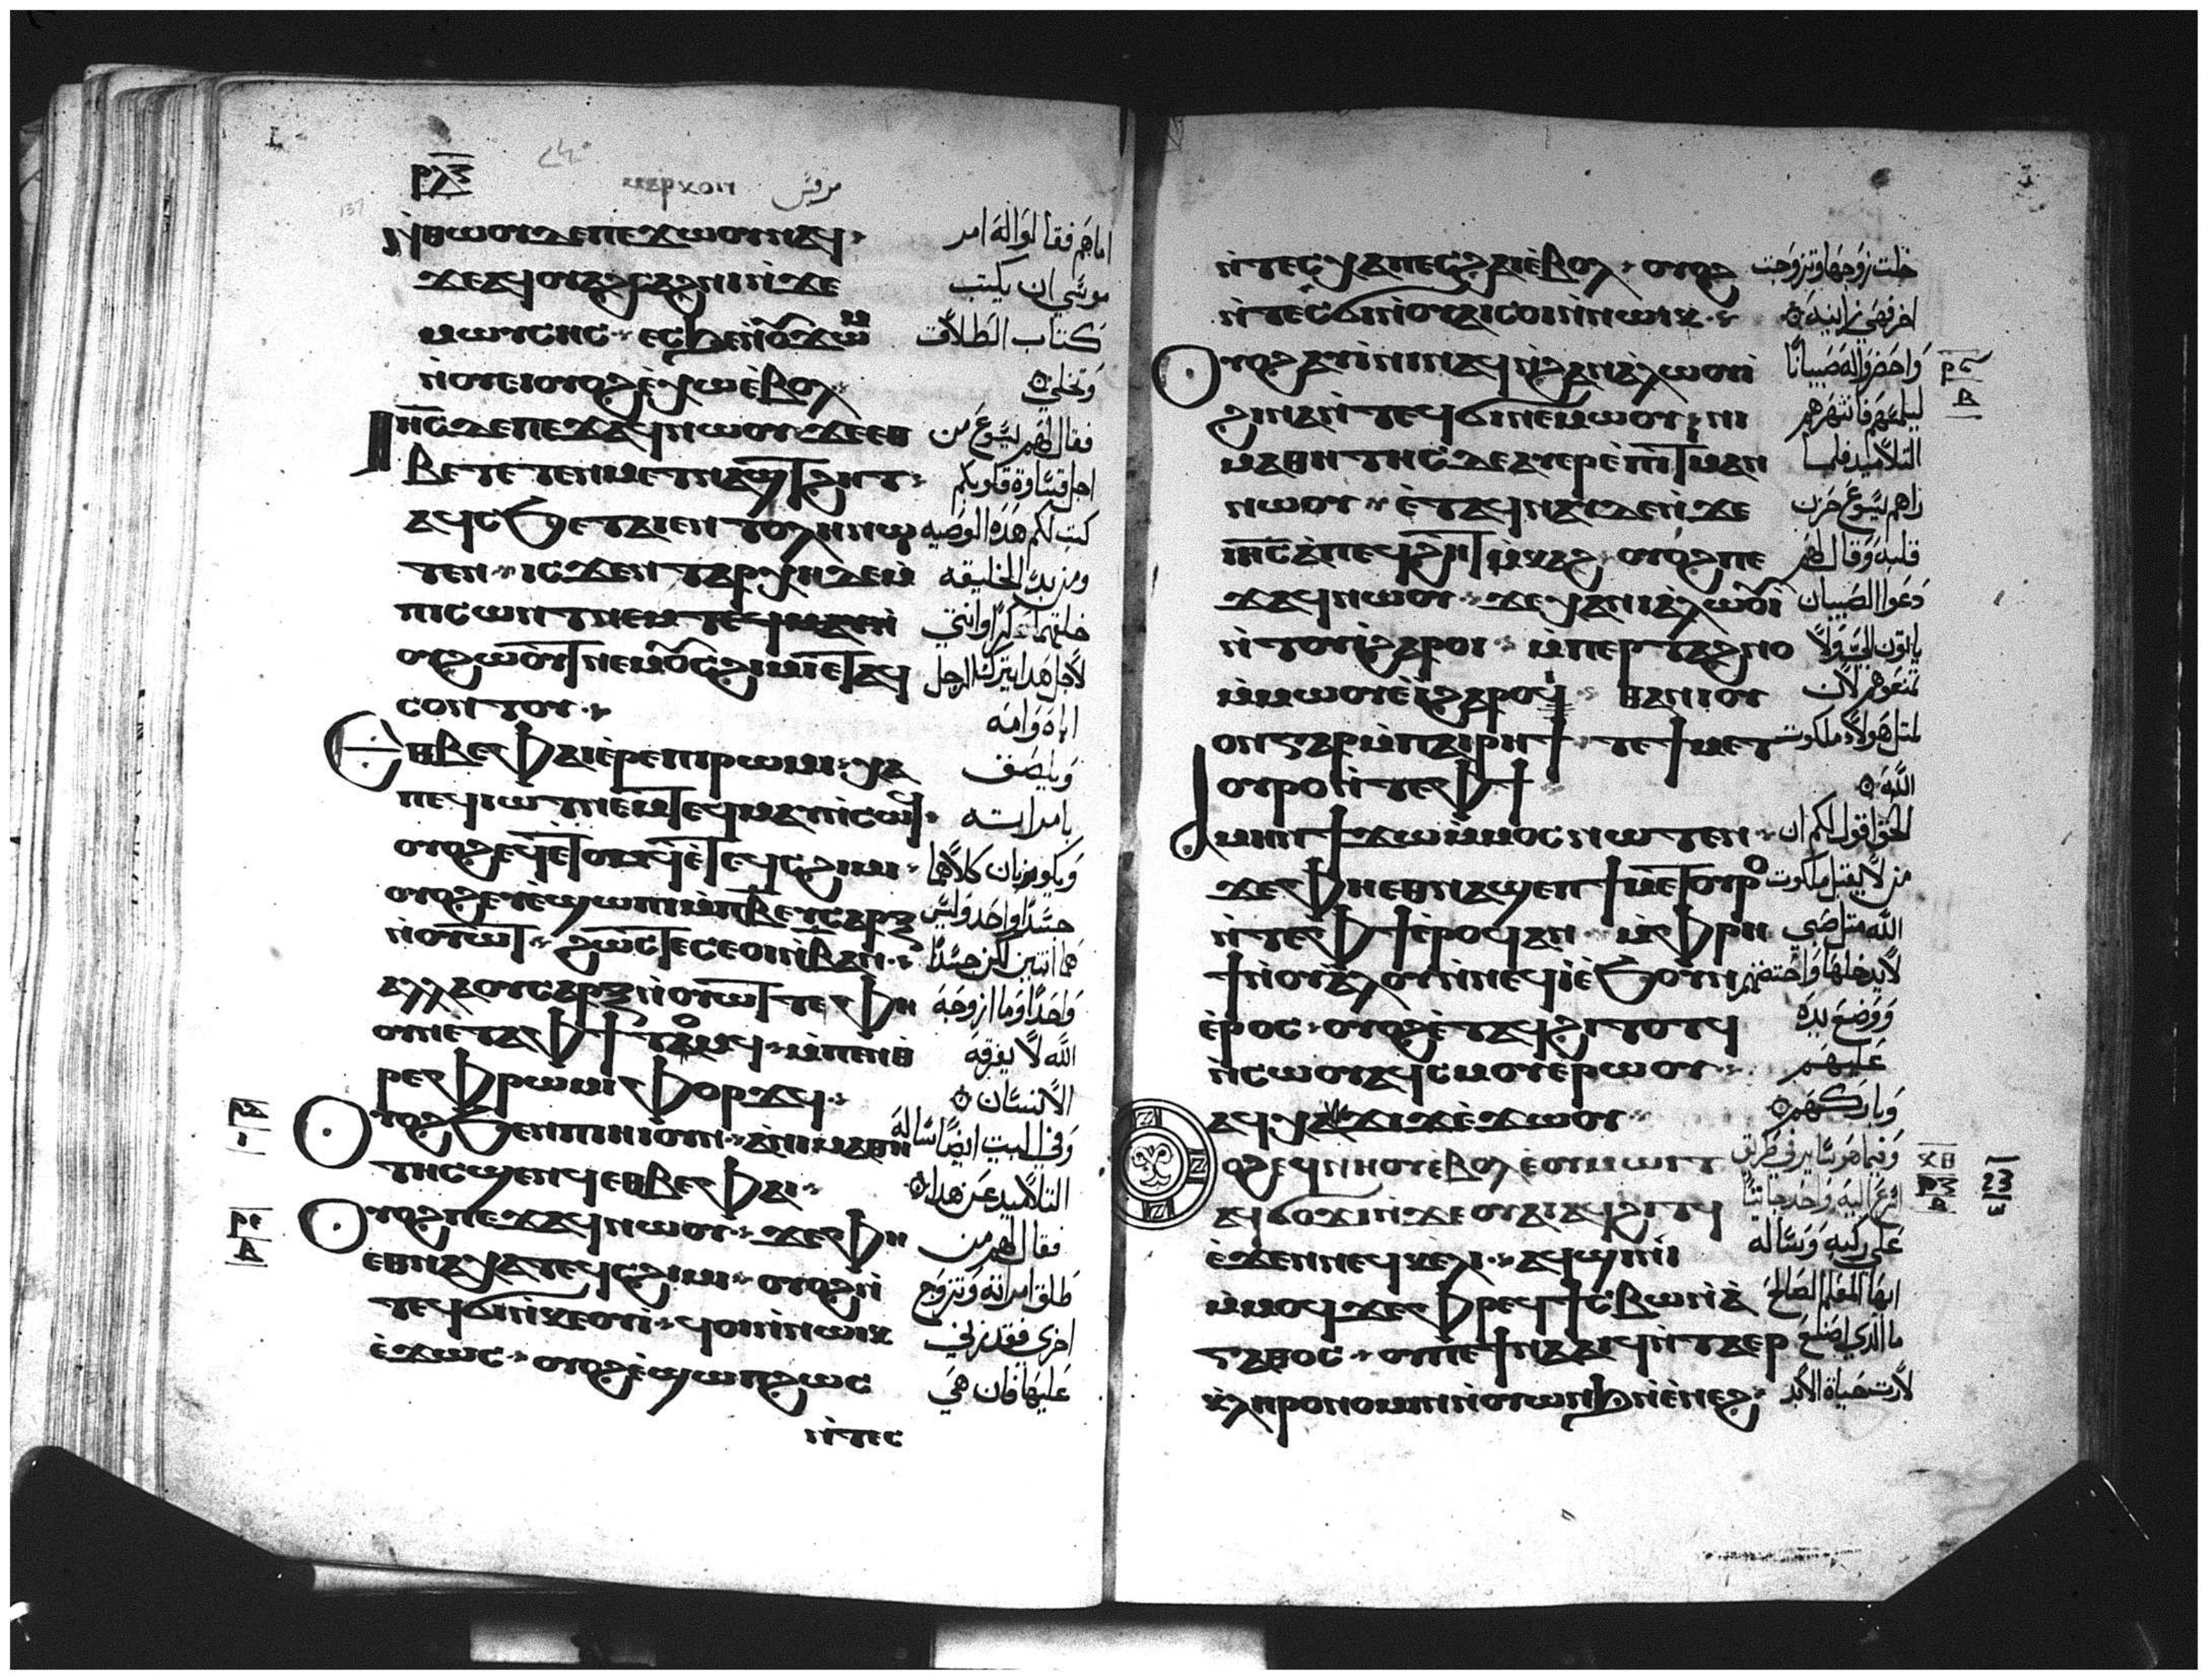 ⲣⲗⲍ
ⲙⲁⲣⲕⲟⲛ مرقس
ⲛ̀ⲑⲱⲟⲩ ⲇⲉ ⲡⲉϫⲱⲟⲩ ⲛⲁϥ
ϫⲉ ⲁϥⲟⲩⲁϩⲥⲁϩⲛⲓ ⲛ̀ϫⲉ
ⲙⲱⲩⲥⲏⲥ
ⲛ̀ⲟⲩⲉⲓ ⲟⲩⲟϩ ⲉ̀ⲭⲱ ⲉ̀ⲃⲟⲗ
ⲓⲏ̅ⲥ̅ ⲇⲉ ⲡⲉϫⲁϥ ⲛⲱⲟⲩ ϫⲉ ⲉⲑ
ⲃⲉ ⲧⲉⲧⲉⲛⲙⲉⲧⲛⲁϣⲧϩⲏⲧ
ⲁϥⲥϧⲉ ⲧⲁⲓⲉⲛⲧⲟⲗⲏ ⲛⲱ
ⲧⲉⲛ ⲓⲥϫⲉⲛ ⲧⲁⲣⲭⲏ ⲇⲉ ⲙ̀
ⲡⲓⲥⲱⲛⲧ
ⲟⲩϩⲱⲟⲩⲧ ⲛⲉⲙ ⲟⲩⲥϩⲓⲙⲓ ⲉⲧⲁϥ
ⲥⲟⲛⲧⲟⲩ
ⲉⲑⲃⲉ ⲫⲁⲓ ⲉ̀ⲣⲉ ⲡⲓⲣⲱⲙⲓ ⲭⲁ
ⲡⲉϥⲓⲱⲧ ⲛⲉⲙ ⲧⲉϥⲙⲁⲩ ⲛ̀ⲥⲱϥ
ⲟⲩⲟϩ ⲉϥⲉ̀ⲧⲟⲙϥ ⲉ̀ⲧⲉϥⲥϩⲓⲙⲓ
ⲟⲩⲟϩ ⲉⲩⲉ̀ϣⲱⲡⲓ ⲙ̀ⲡⲃ̅ ⲉⲩⲥⲁⲣⲝ
ⲛ̀ⲟⲩⲱⲧ ϩⲱⲥⲧⲉ ⲥⲉⲟⲓ ⲛ̀ⲃ̅ ⲁⲛ
ⲁⲗⲗⲁ ⲟⲩⲥⲁⲣⲝ ⲛ̀ⲟⲩⲱⲧ ⲧⲉ ⲫⲏ
ⲟⲩⲛ ⲉ̀ⲧⲁ ⲫϯ ⲧⲟⲙϥ ⲙ̀ⲡⲉⲛⲑ
ⲣⲉ ⲫⲣⲱⲙⲓ ⲫⲟⲣϫϥ
ⲟⲩⲟϩ ϧⲉⲛ ⲡⲓⲏⲓ ⲟⲛ ⲁ̀ ⲛⲓⲙⲁⲑⲏ
ⲧⲏⲥ ϣⲉⲛϥ ⲉⲑⲃⲉ ⲫⲁⲓ
ⲟⲩⲟϩ ⲡⲉϫⲁϥ ⲛⲱⲟⲩ ϫⲉ ⲫⲏ
ⲉⲑⲛⲁⲭⲁ ⲧⲉϥⲥϩⲓⲙⲓ ⲟⲩⲟϩ ⲛ̀
ⲧⲉϥϭⲓ ⲛ̀ⲕⲉⲟⲩⲓ̀ ϥⲟⲓ ⲛ̀ⲛⲱⲓⲕ
ⲉ̀ϫⲱⲥ ⲟⲩⲟϩ ⲉ̀ϣⲱⲡ ϩⲱⲥ
ⲛ̀ⲧⲉⲥ
اماهم فقالوا له امر
موسي ان يكتب
كتاب الطلاق
وتخلي
فقال لهم يسوع من
اجل قساوة قلوبكم
كتب لكم هذه الوصيه
ومن بدء الخليقه
خلقهما ذكرا وانثي
لاجل هذا يترك الرجل
اباه وامه
ويلصق
بامراته
ويكونان كلاهما
جسدا واحدا وليس
هما اثنين لكن جسدا
واحدا وما ازوجه
الله لا يفرقه
الانسان
وفي البيت ايضا ساله
التلاميد عن هدا
فقال لهم من
طلق امراته وتزوج
اخري فقد زني
عليها فان هي
ⲛ̀ⲧⲉⲥⲭⲁ ⲡⲉⲥϩⲁⲓ ⲉ̀ⲃⲟⲗ ⲟⲩⲟϩ
ⲛ̀ⲧⲉⲥϭⲓ ⲛ̀ⲟⲩⲁⲓ ⲥⲟⲓ ⲛ̀ⲛⲱⲓⲕ
ⲟⲩⲟϩ ⲁⲩⲓ̀ⲛⲓ ⲛⲁϥ ⲛ̀ϩⲁⲛⲁ̀ⲗⲱⲟⲩⲓ̀
ϩⲓⲛⲁ ⲛ̀ⲧⲉϥϭⲓ ⲛⲉⲙⲱⲟⲩ ⲛⲓ
ⲙⲁⲑⲏⲧⲏⲥ ⲇⲉ ⲁⲩⲉⲣⲉ̀ⲡⲓⲧⲓⲙⲁⲛ
ⲛⲱⲟⲩ ⲉ̀ⲧⲁϥⲛⲁⲩ ⲇⲉ ⲛ̀ϫⲉ
ⲓⲏ̅ⲥ̅ ⲁ̀ ⲡⲉϥϩⲏⲧ ⲙ̀ⲕⲁϩ ⲟⲩⲟϩ ⲡⲉ
ϫⲁϥ ⲛⲱⲟⲩ ϫⲉ ⲭⲁ ⲛⲓⲁ̀ⲗⲱⲟⲩⲓ̀
ⲛ̀ⲧⲟⲩⲓ̀ ϩⲁⲣⲟⲓ ⲙ̀ⲡⲉⲣⲧⲁϩⲛⲟ
ⲙ̀ⲙⲱⲟⲩ ⲉ̀ⲓ̀ ϩⲁⲣⲟⲓ ⲑⲁ ⲛⲓⲟⲩ
ⲟⲛ ⲅⲁⲣ ⲙ̀ⲡⲁⲓⲣⲏϯ ⲧⲉ ϯⲙⲉⲧ
ⲟⲩⲣⲟ ⲛ̀ⲧⲉ ⲫϯ
ⲁⲙⲏⲛ ϯϫⲱ ⲙ̀ⲙⲟⲥ ⲛⲱⲧⲉⲛ
ϫⲉ ⲫⲏ ⲉⲑⲛⲁϣⲉⲡ ϯⲙⲉⲧⲟⲩⲣⲟ
ⲛ̀ⲧⲉ ⲫϯ ⲉ̀ⲣⲟϥ ⲁⲛ ⲙ̀ⲫⲣⲏ
ϯ ⲛ̀ⲟⲩⲁ̀ⲗⲟⲩ ⲛ̀ⲛⲉϥⲓ̀ ⲉ̀ϧⲟⲩⲛ
ⲉ̀ⲣⲟⲥ ⲟⲩⲟϩ ⲉ̀ⲧⲁϥϩⲓⲧⲟⲧϥ
ⲛ̀ⲥⲱⲟⲩ ⲁϥⲥⲙⲟⲩ ⲉ̀ⲣⲱⲟⲩ
ⲁϥⲭⲁ ϫⲓϫ ⲉ̀ϫⲱⲟⲩ
ⲟⲩⲟϩ ⲉϥⲛⲏⲟⲩ ⲉ̀ⲃⲟⲗ ⲉ̀ⲟⲩⲙⲱⲓⲧ
ⲁϥϭⲟϫⲓ ⲛ̀ϫⲉ ⲟⲩⲁⲓ ⲁϥϩⲓⲧϥ
ⲉ̀ϫⲉⲛ ⲛⲉϥⲕⲉⲗⲓ ⲁϥϣⲓⲛⲓ
ⲙ̀ⲙⲟϥ ϫⲉ ⲫⲣⲉϥϯⲥⲃⲱ ⲛ̀ⲁ̀
ⲅⲁⲑⲟⲥ ⲟⲩ ⲡⲉϯⲛⲁⲁⲓϥ ⲛ̀ⲧⲁⲉⲣ
ⲕ̀ⲗⲏⲣⲟⲛⲟⲙⲓⲛ ⲛ̀ⲟⲩⲱⲛϧ ⲛ̀ⲉ̀ⲛⲉϩ
خلت زوجها وتزوجت
اخر فهي زانيه
واحضروا له صبيانا
ليلمسهم فانتهرهم
التلاميد فلما
راهم يسوع حزن
قلبه وقال لهم
دعوا الصبيان
ياتون الي ولا
تمنعوهم لان
لمثل هولاء ملكوت
الله
الحق اقول لكم ان
من لا يقبل ملكوت
الله مثل صبي
لا يدخلها واحتضنهم
ووضع يده
عليهم
وباركهم
وفيما هو ساير في طريق
علي ركبتيه وساله
ايها المعلم الصالح
ما الذي اصنع
لارث حياة الابد